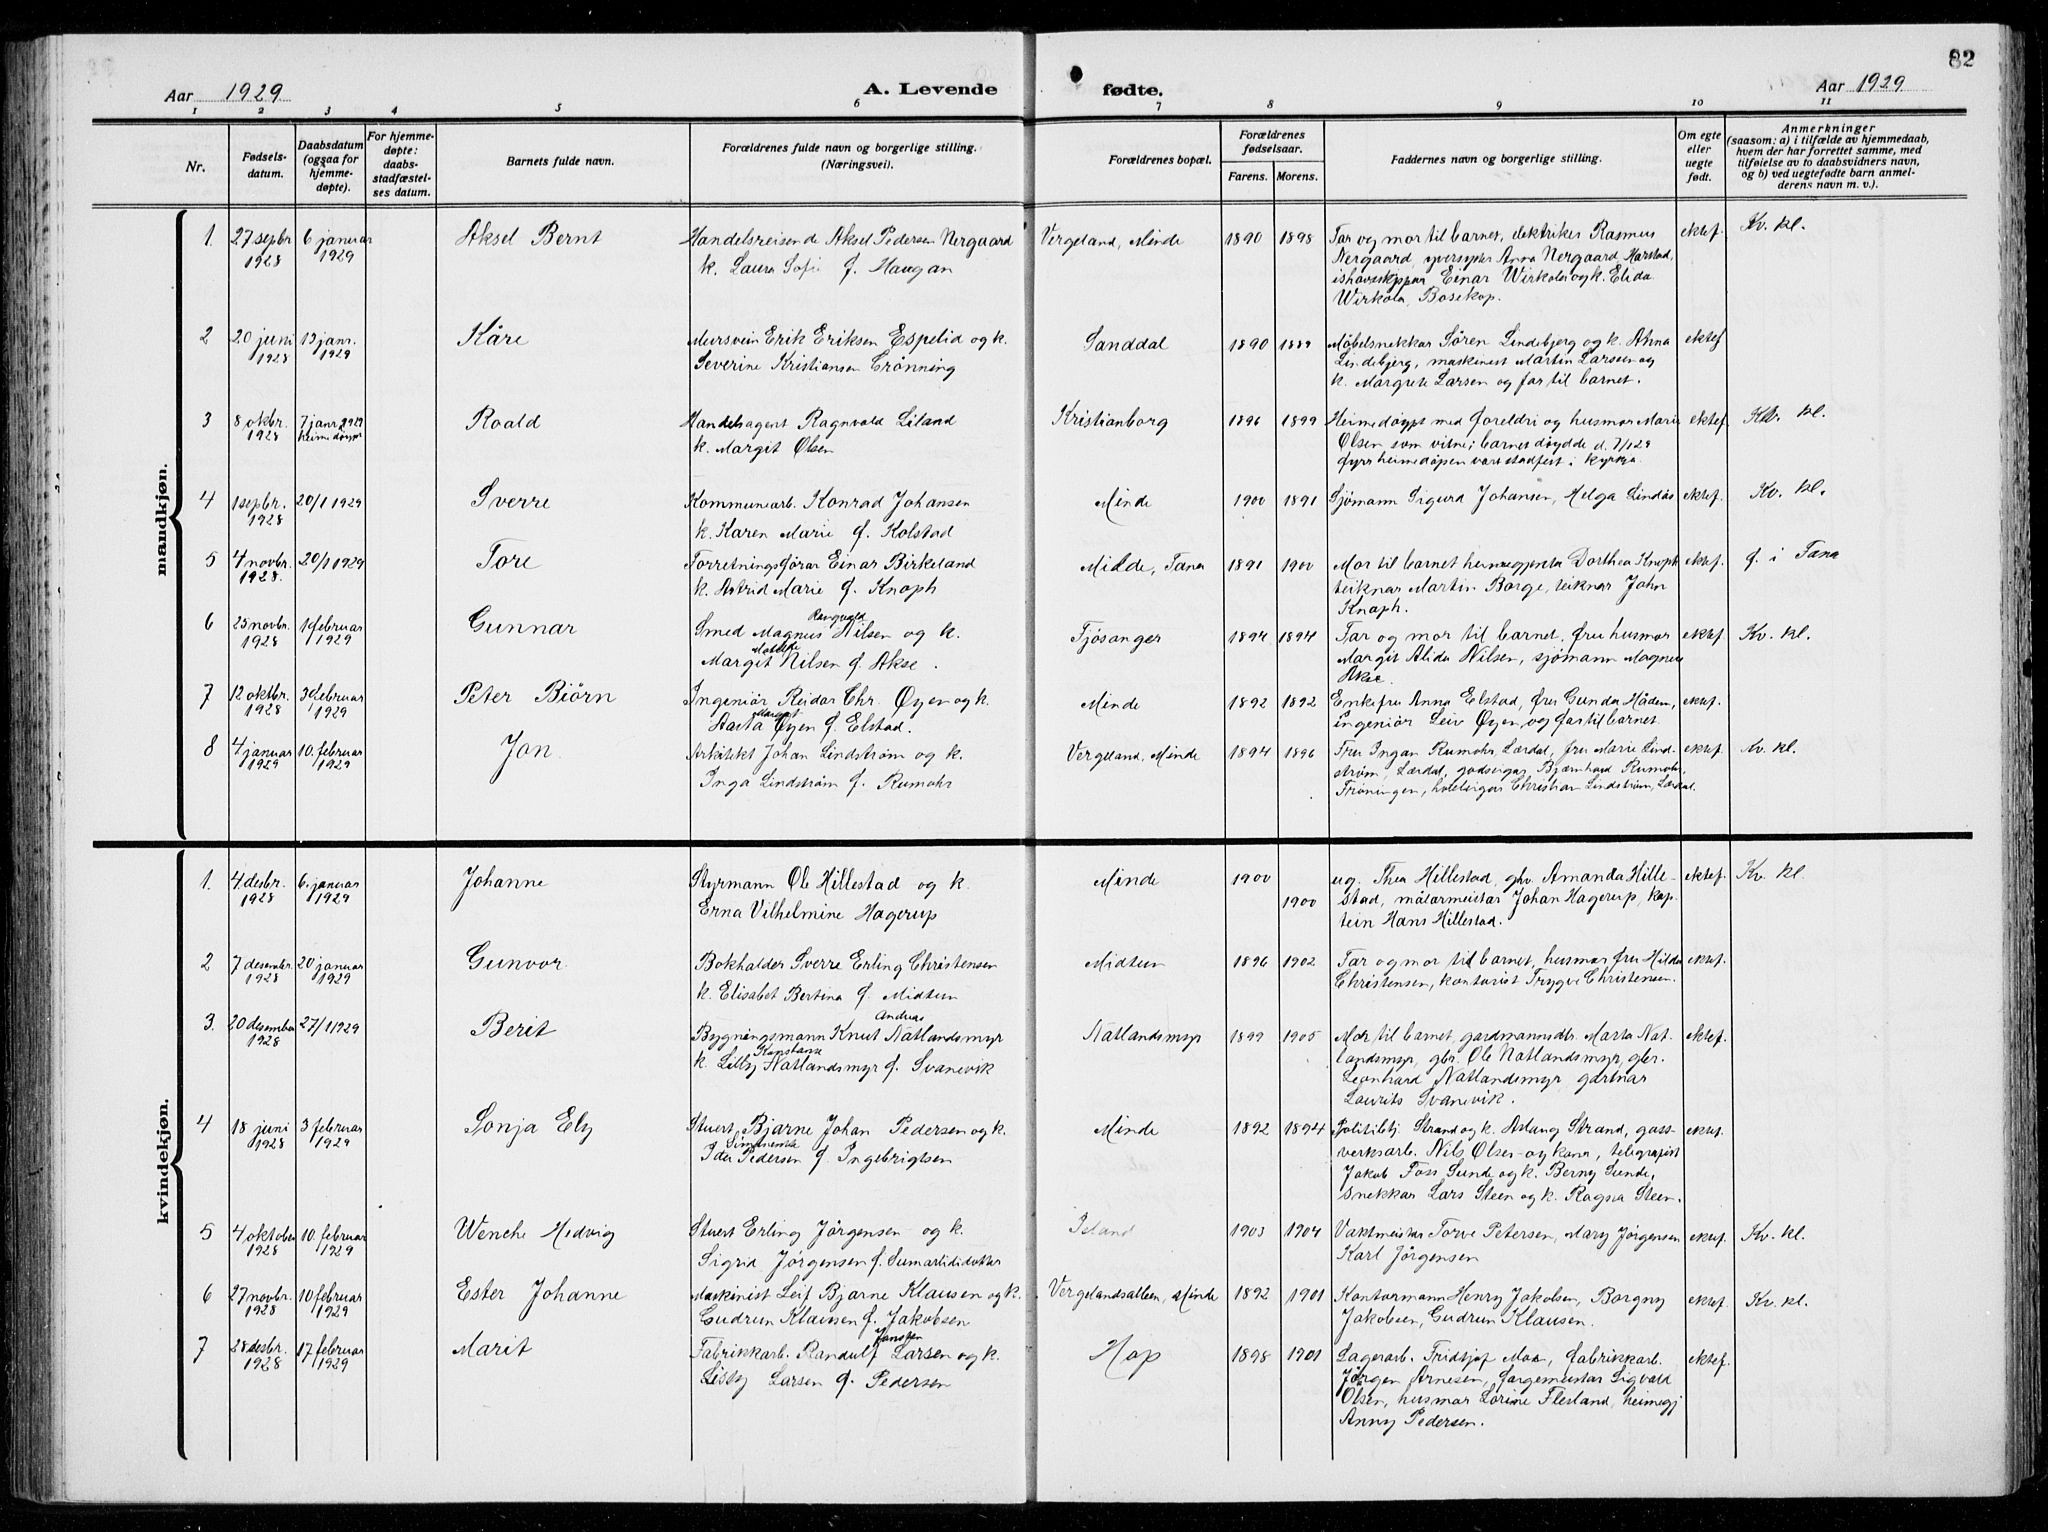 82
Aar 1929
A. Levende
fødte.
Aar 1929
1 2 3 4 5 6 7 8 9 10 11
Nr.
Fødsels-
datum.
Daabsdatum
(ogsaa for
hjemme-
døpte).
For hjemme-
døpte:
daabs-
stadfæstel-
ses datum.
Barnets fulde navn.
Forældrenes fulde navn og borgerlige stilling.
(Næringsvei).
Forældrenes bopæl.
Forældrenes
fødselsaar.
Farens. Morens.
Faddernes navn og borgerlige stilling.
Om egte
eller
uegte
født.
Anmerkninger
(saasom: a) i tilfælde av hjemmedaab,
hvem der har forrettet samme, med
tilføielse av to daabsvidners navn,
og b) ved uegtefødte barn anmel-
derens navn m. v.).
mandkjøn.
1. 27 sepbr. 1928 6 januar 1929 Aksel Bernt
Handelsreisende Aksel Pedersen Nergaard
k. Laura Sofie f. Haugan
Vergeland, Minde 1890 1898
Far og mor til barnet, elektriker Rasmus
Nergaard, Anna Nergaard, Harstad,
ishavsskipper Einar Wirkola og k. Elida
Wirkola, Bosekop.
ektef. Kv. kl.
2 20 juni 1928 13 janr. 1929 Kåre
Mursvein Erik Eriksen Espelid og k.
Severine Kristiansen Grönning
Sanddal 1890 1889
Møbelsnekkar Sören Lindebjerg og k. Anna
Lindebjerg, maskinist Martin Larsen og
k. Margrete Larsen og far til barnet.
ektef
3 8 okbr. 1928 7 janr 1929 heimedøypt Roald
Handelsagent Ragnvald Liland
k. Margit Olsen
Kristianborg 1896 1899
Heimedøypt med foreldri og husmor Marie
Olsen som vitne; barnet döydde d. 7/1 29
fyrr heimedöpen vart stadfest i kyrkja
ektef. Kv. kl.
4 1 sepbr. 1928 20/1 1929 Sverre
Kommunearb. Konrad Johansen
k. Karen Marie f. Kolstad
Minde 1900 1891
Sjömann Sigurd Johansen, Helga Lindås
ektef. Kv. kl.
5 4 novbr. 1928. 20/1 1929 Tore
Forretningsförar Einar Birkeland
k. Astrid Marie f. Knoph
Milde, Fana 1891 1900
Mor til barnet Dorthea Knoph
teiknar Martin Borge, teiknar John
Knoph.
ektef. f. i Fana
6 25 novbr. 1928 1 februar 1929 Gunnar
Rangvald
Smed Magnus Nilsen og k.
Margit Nilsen f. Akse.
Tjösanger 1894 1894
Far og mor til barnet, fru husmor
Margit Alida Nilsen, sjömann Magnus
Akse.
ektef. Kv. kl.
7 12 oktbr. 1928 3 februar 1929 Peter Björn
Ingeniör Reidar Chr. Øyen og k.
Margit
Aasta Øyen f. Elstad.
Minde 1892 1892
Enkefru Anna Elstad, fru Gunda Hådem,
ingeniör Leiv Øyen og far til barnet.
ektef.
8 4 januar 1929 10. februar 1929 Jon.
Arkitekt Johan Lindstrøm og k.
Inga Lindstrøm f. Rumohr
Vergeland, Minde 1894 1896
Fru Ingan Rumohr, Lærdal, fru Marie Lind-
strøm, Lærdal, godseigar Bjærnhard Rumohr,
Frøningen, hoteleigar Christian Lindstrøm, Lærdal.
ektef. Kv. kl.
kvindekjøn.
1. 4 desbr. 1928 6. januar 1929 Johanne
Styrmann Ole Hillestad og k.
Erna Vilhelmine Hagerup
Minde 1900 1900
ug. Thea Hillestad, Amanda Hille-
stad, målarmeistar Johan Hagerup, kap-
tein Hans Hillestad.
ektef. Kv. kl.
2 7 desembr. 1928 20 januar 1929 Gunvor
Bokhalder Sverre Erling Christensen
k. Elisabet Bertina f. Midtun
Midtun 1896 1902
Far og mor til barnet, husmor fru Hilda
Christensen, kontorist Trygve Christensen.
ektef.
3. 20 desember 1928 27/1 1929 Berit
Andreas
Bygningsmann Knut Natlandsmyr
Konstanse
k. Lilly Natlandsmyr f. Svanevik
Natlandsmyr 1899 1905
Mor til barnet, gardmannsdtr. Marta Nat-
landsmyr, gbr. Ole Natlandsmyr, gbr.
Leonhard Natlandsmyr, gartnar
Laurits Svanevik.
ektef.
4 18 juni 1928 3 februar 1929 Sonja Ely
Stuert Bjarne Johan Pedersen og k.
Ida Pedersen f. Ingebrigtsen
Minde 1892 1894
Politibtj. Strand og k. Aslaug Strand, gass-
verksarb. Nils Olsen og kona, telegrafist
Jakob Foss Sunde og k. Berny Sunde,
snekkar Lars Steen og k. Ragna Steen.
ektef.
5 4 oktober 1928 10. februar 1929 Wenche Hedvig
Stuert Erling Jørgensen og k.
Sigrid Jørgensen f. Sumarlididottir
Island 1903 1904
Vaktmeister Torve Petersen, Mary Jørgensen
Karl Jörgensen
ektef. Kv. kl.
6 27 novbr. 1928 10 februar 1929 Ester Johanne
Maskinist Leif Bjarne Klausen og k.
Gudrun Klausen f. Jakobsen
Vergelandsalleen, Minde 1892 1901
Kontormann Henry Jakobsen, Borgny
Jakobsen, Gudrun Klausen.
ektef. Kv. kl.
7 28 desbr. 1928 17 februar 1929 Marit
Fabrikkarb. Randulf Larsen og k.
Lisby Larsen f. Pedersen
Hop 1898 1901
Lagerarb. Fridtjof Moe, fabrikkarb.
Jörgen Arnesen, fargemeistar Sigvald
Olsen, husmor Lorine Flesland, heimegj
Anny Pedersen.
ektef.